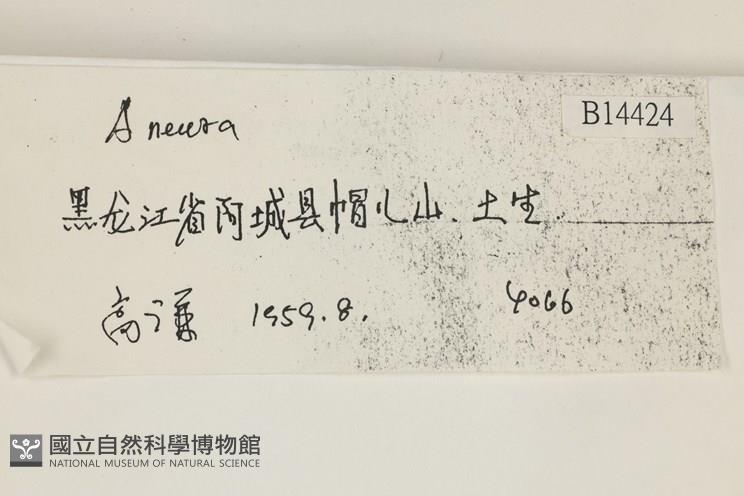 B14424
Aneura
黑龙江省阿城县帽儿山、土生
高谦 1959.8. 4066
國立自然科學博物館
NATIONAL MUSEUM OF NATURAL SCIENCE